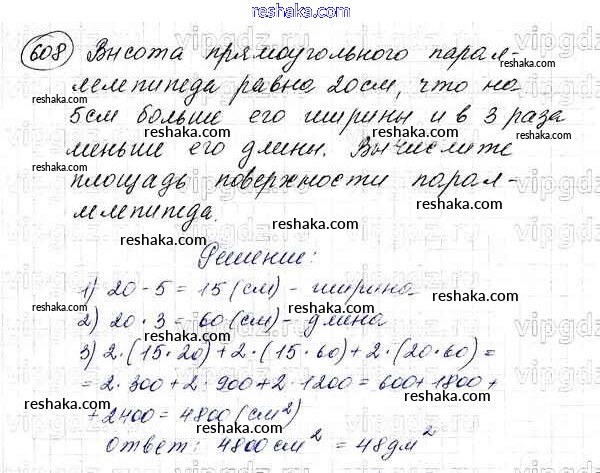 reshaka.com
608 Высота прямоугольного парал-
лелепипеда равна 20см, что на
5см больше его ширины и в 3 раза
меньше его длины. Вычислите
площадь поверхности парал-
лелепипеда.
Решение:
1) 20 - 5 = 15 (см) - ширина
2) 20 · 3 = 60 (см) - длина
3) 2·(15·20)+2·(15·60)+2·(20·60)=
=2·300+2·900+2·1200=600+1800+
+2400=4800(см²)
Ответ: 4800см² = 48дм²